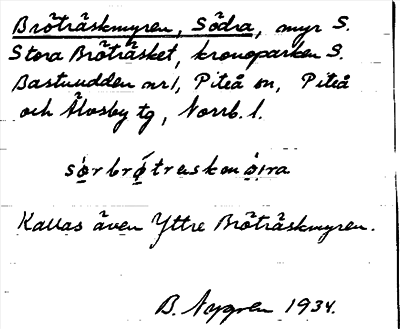 Bröträskmyren, Södra, myr S.
Stora Bröträsket, kronoparken S.
Bastuudden nr 1, Piteå sn, Piteå
och Älvsby tg, Norrb. l.
Kallas även Yttre Bröträskmyren.
B. Nygren 1934.